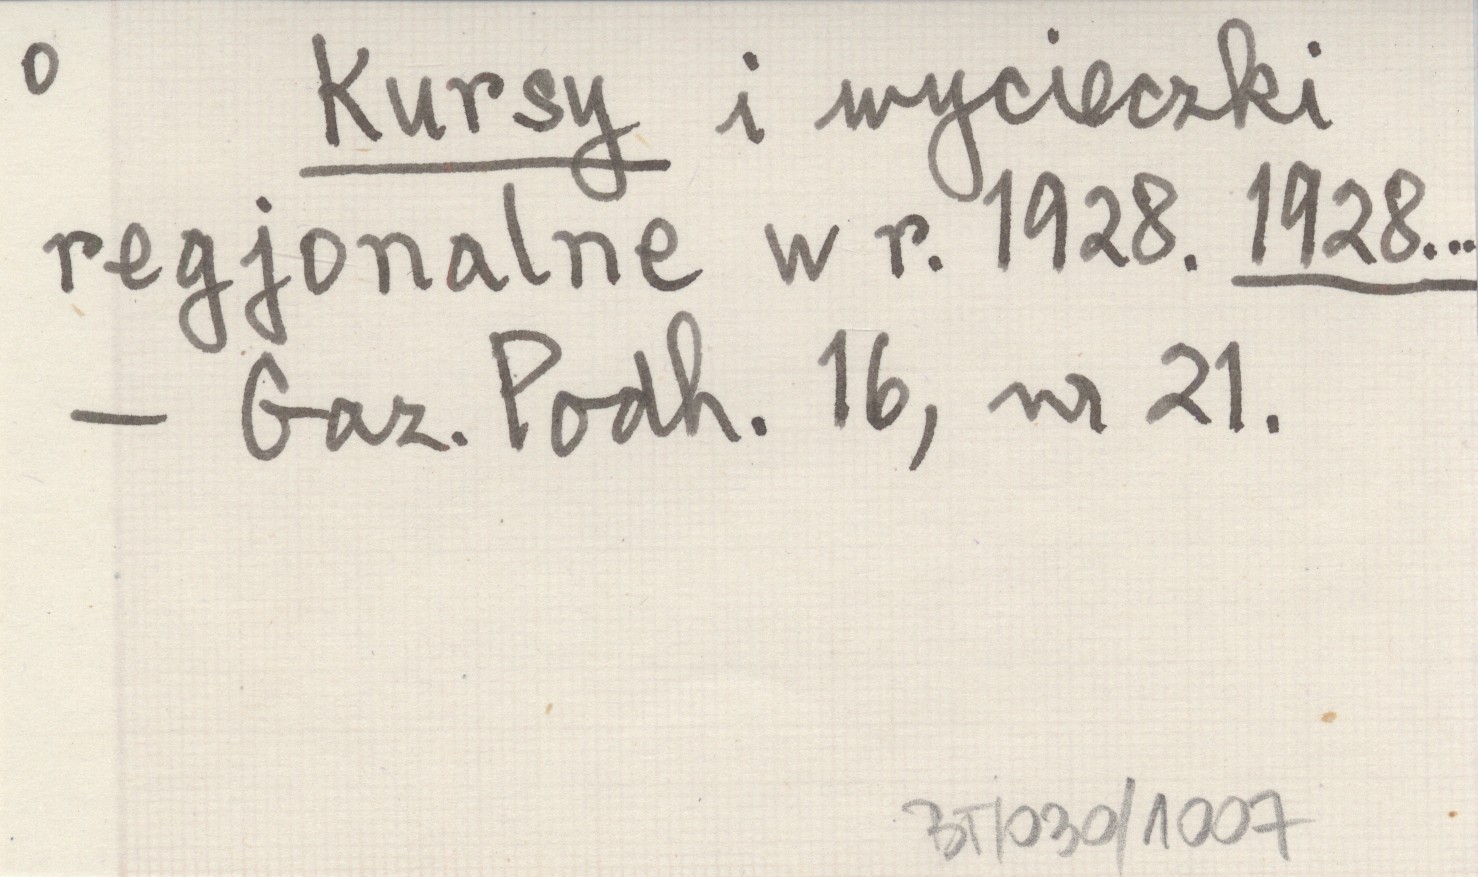 o Kursy i wycieczki
regjonalne w r. 1928. 1928...
— Gaz. Podh. 16, nr 21.
BT/030/1007